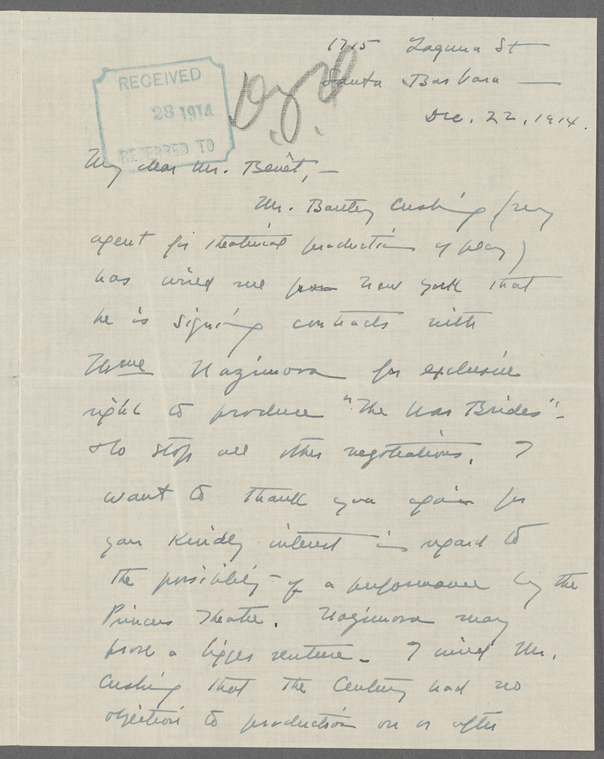 1715 Laguna St
Santa Barbara
Dec. 22, 1914.
RECEIVED
28 1914
REFERRED TO
My dear Mr. Benét,—
Mr. Cushing (my
agent for theatrical production of play)
has wired me from New York that
he is signing contracts with
Mme Nazimova for exclusive
right to produce "The War Brides"-
& to stop all other negotiations. I
want to thank you again for
your kindly interest in regard to
the possibility of a performance by the
Princess Theatre. Nazimova may
prove a bigger venture. I wired Mr.
Cushing that the Century had no
objection to production on or after